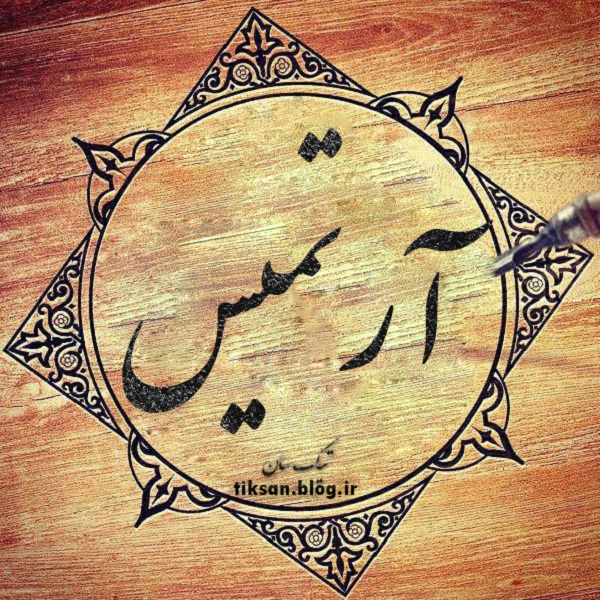 آرتمیس
تیک سان
tiksan.blog.ir